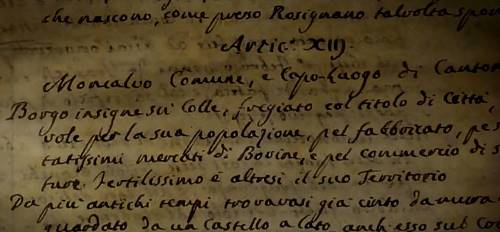 che nascono, come presso Rosignano talvolta spon
Artic: XIIJ.
Moncalvo Comune, e Capo-luogo di Canton
Borgo insigne sù Colle, fregiato col titolo di Città
vole per la sua popolazione, pel fabbricato, pe s
tatissimi mercati di Bovine, e pel commercio di s
ture. Fertilissimo è altresì il suo Territorio
Da più antichi tempi trovavasi già cinto da mura
guardato da un Castello a lato anch'esso sul Co